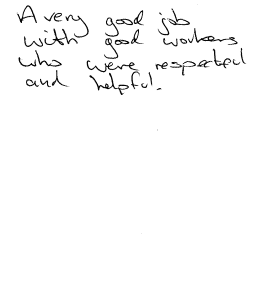 A very good job
with good workers
who were respectful
and helpful.